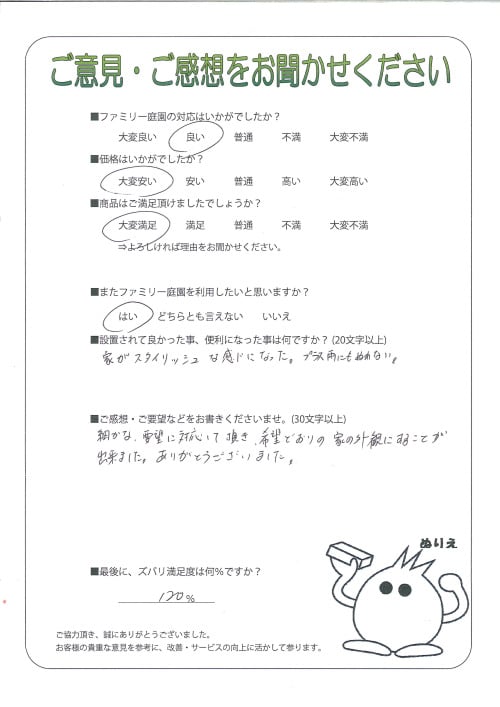 ご意見・ご感想をお聞かせください
■ファミリー庭園の対応はいかがでしたか？
大変良い 良い 普通 不満 大変不満
■価格はいかがでしたか？
大変安い 安い 普通 高い 大変高い
■商品はご満足頂けましたでしょうか？
大変満足 満足 普通 不満 大変不満
⇒よろしければ理由をお聞かせください。
■またファミリー庭園を利用したいと思いますか？
はい どちらとも言えない いいえ
■設置されて良かった事、便利になった事は何ですか？(20文字以上)
家がスタイリッシュな感じになった。プラス雨にもぬれない。
■ご感想・ご要望などをお書きくださいませ。(30文字以上)
細かな、要望に対応いて頂き、希望どおりの家の外観にすることが
出来ました。ありがとうございました。
ぬりえ
■最後に、ズバリ満足度は何%ですか？
120%
ご協力頂き、誠にありがとうございました。
お客様の貴重な意見を参考に、改善・サービスの向上に活かして参ります。